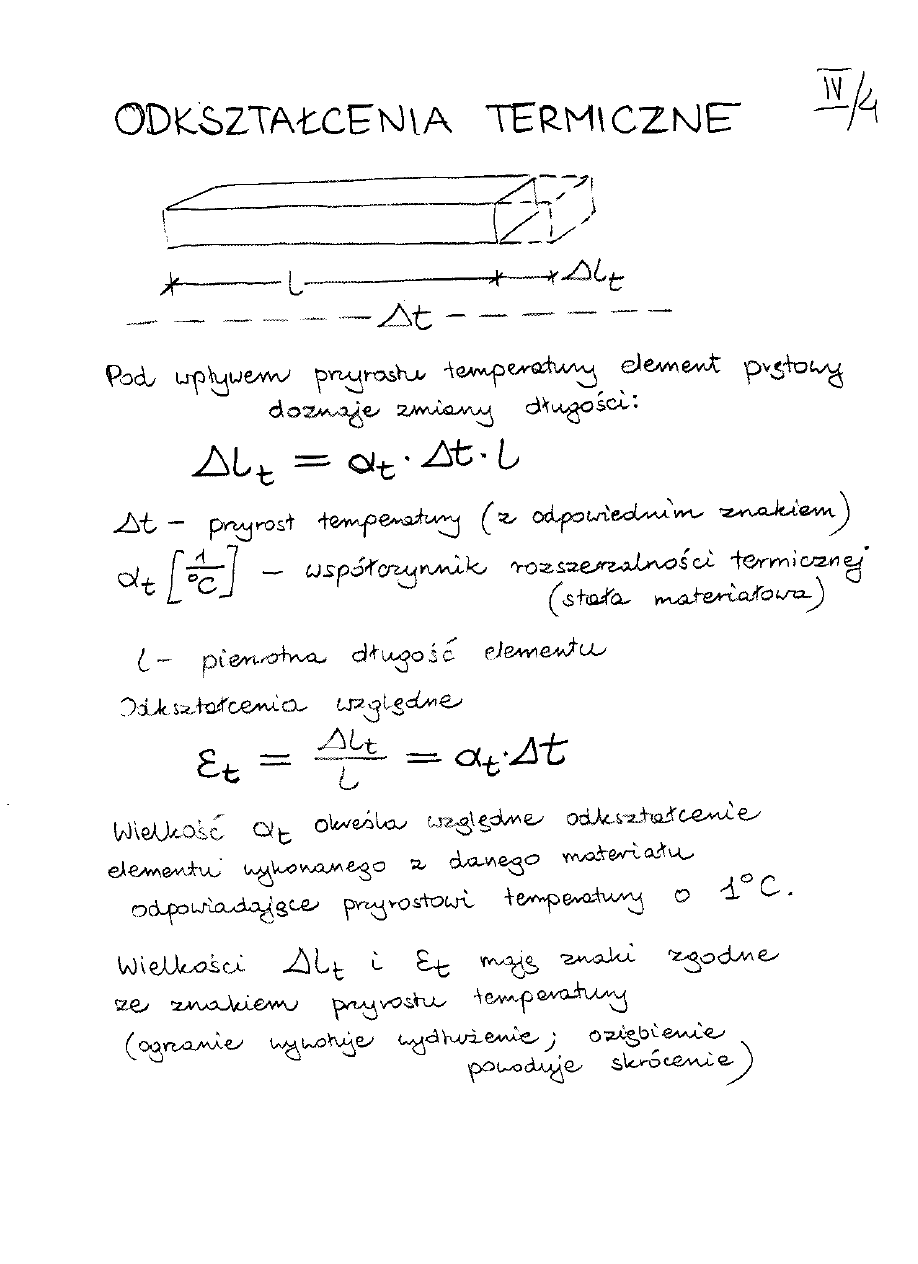 IV/4
ODKSZTAŁCENIA TERMICZNE
l ΔLt
Δt
Pod wpływem przyrostu temperatury element prętowy
doznaje zmiany długości:
ΔLt = αt · Δt · l
Δt – przyrost temperatury (z odpowiednim znakiem)
αt [1/°C] – współczynnik rozszerzalności termicznej
(stała materiałowa)
l – pierwotna długość elementu
Odkształcenia względne
εt = ΔLt/L = αt·Δt
Wielkość αt określa względne odkształcenie
elementu wykonanego z danego materiału
odpowiadające przyrostowi temperatury o 1°C.
Wielkości ΔLt i εt mają znaki zgodne
ze znakiem przyrostu temperatury
(ogrzanie wywołuje wydłużenie; oziębienie
powoduje skrócenie)